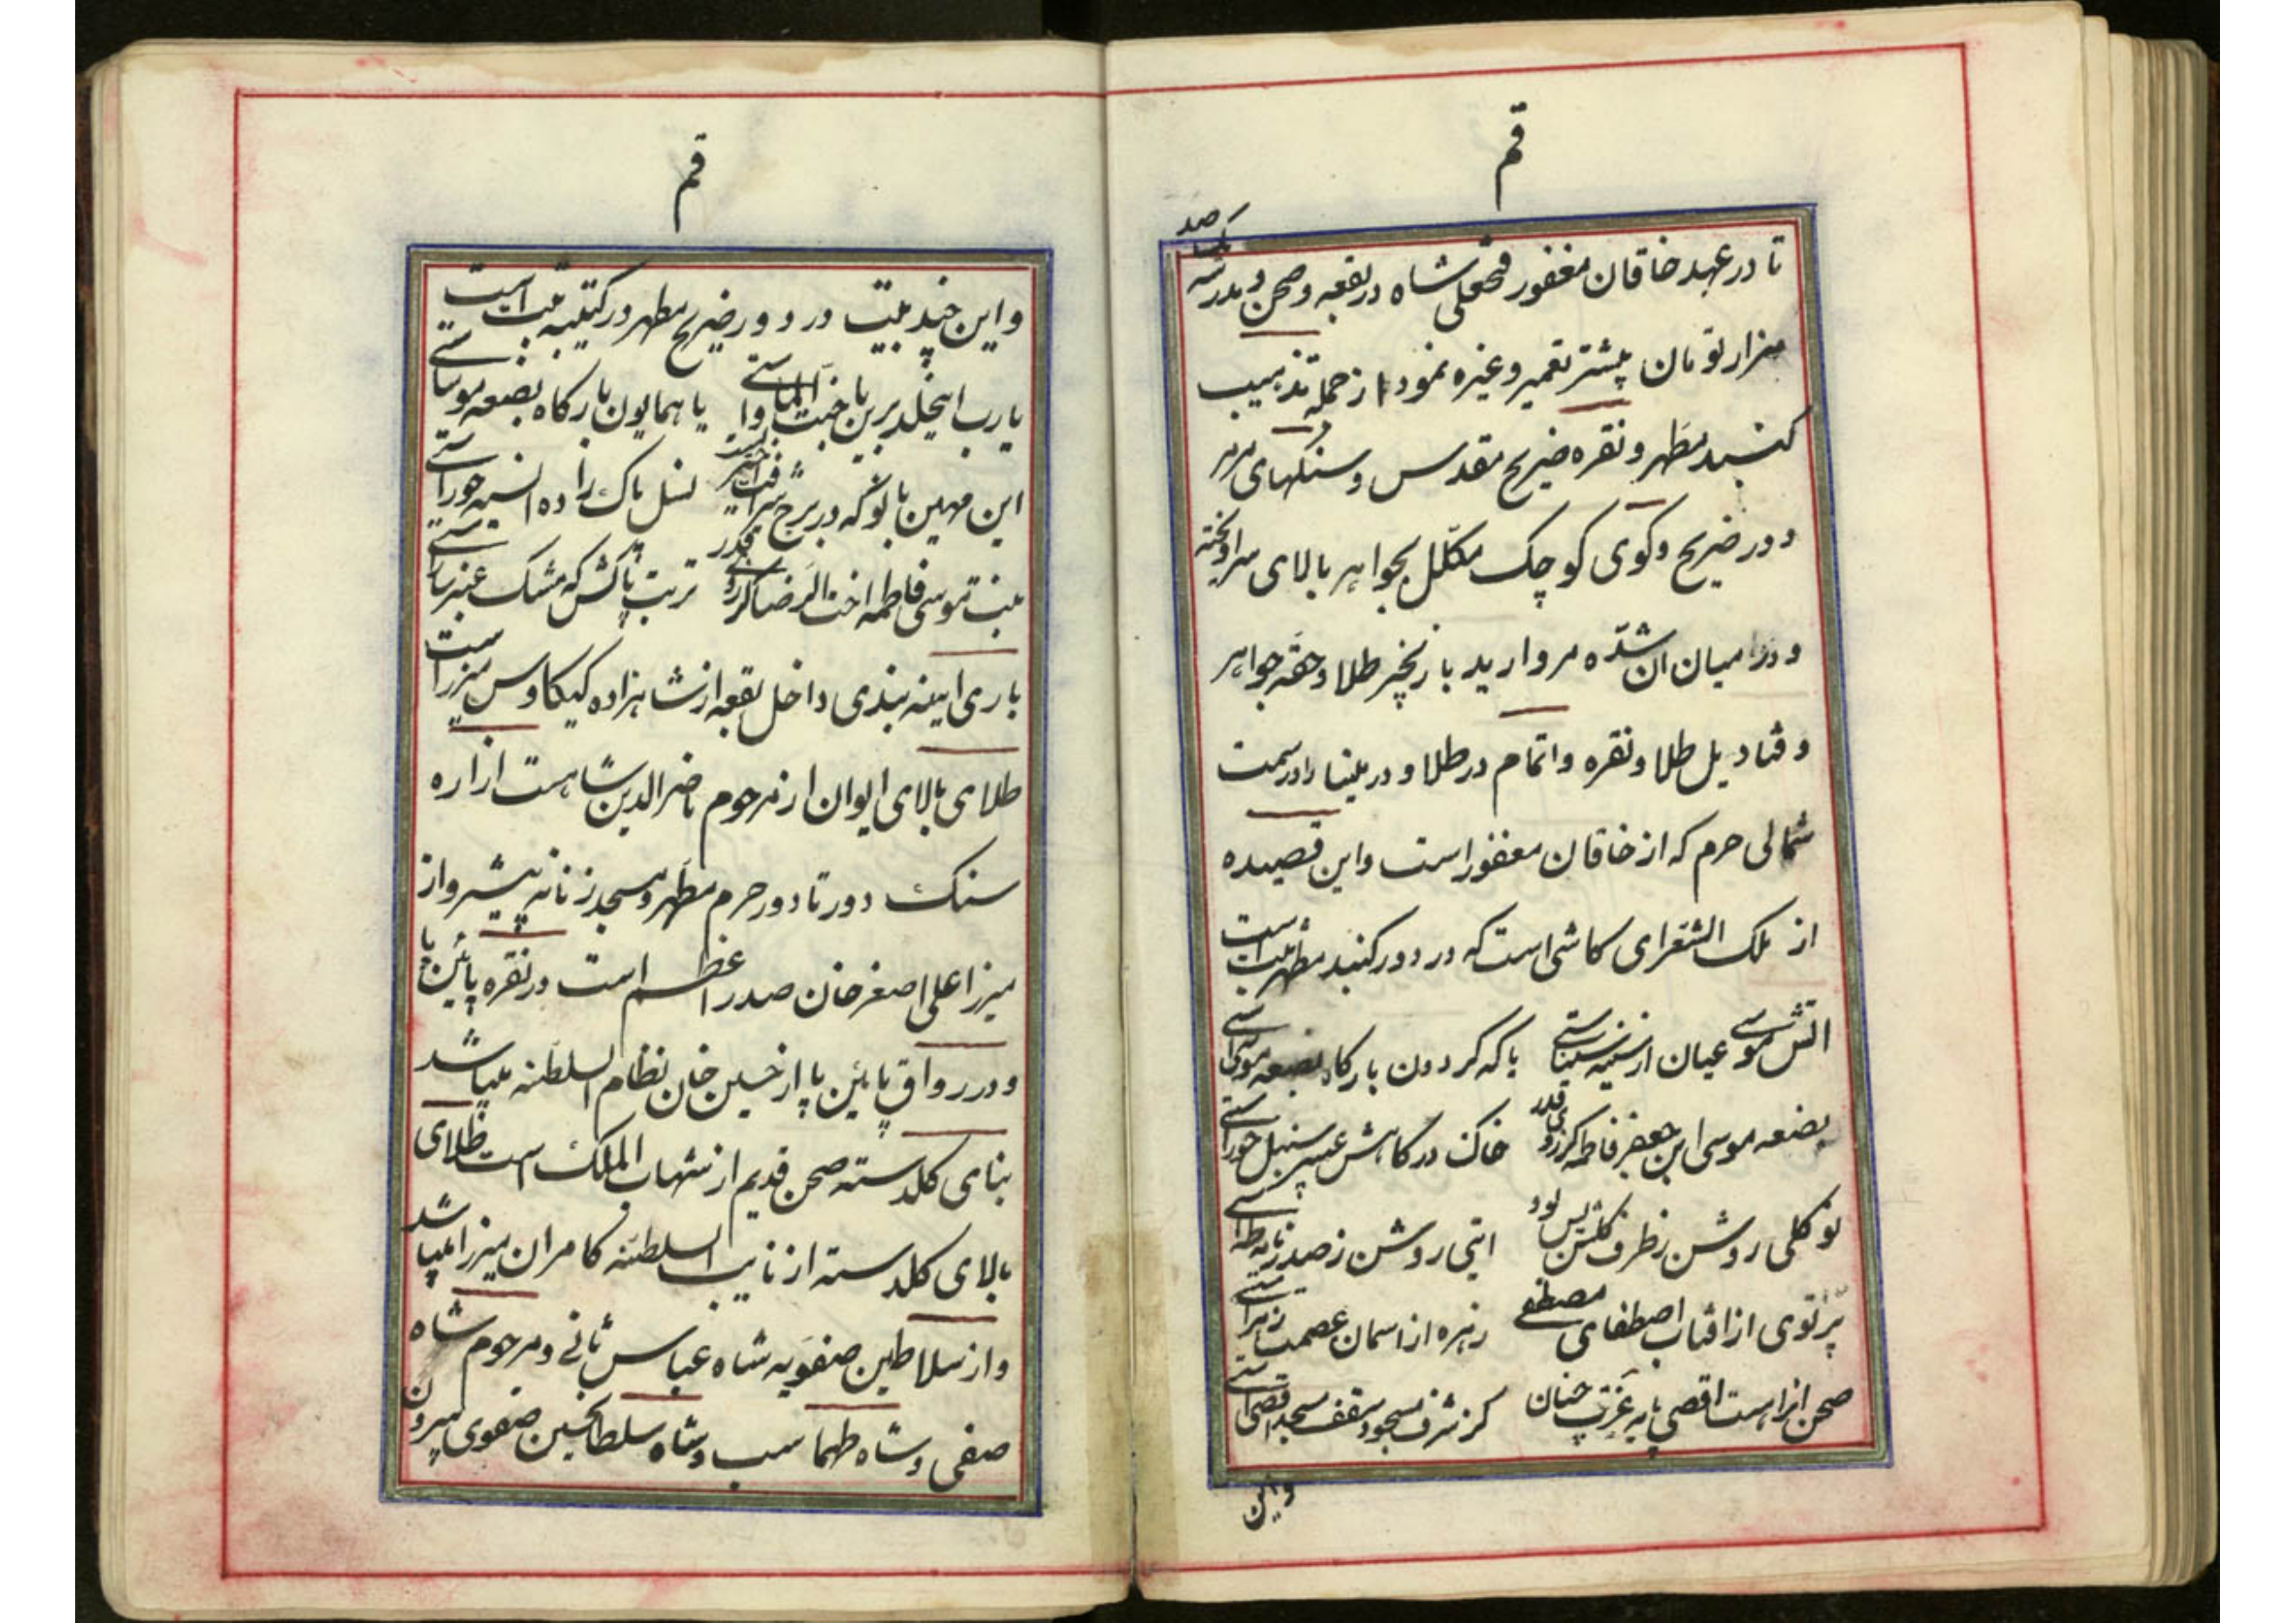 قم
تا در عهد خاقان مغفور فتحعلی شاه در بقعه و صحن و مدرسه یکصد
هزار تومان پیشتر تعمیر و غیره نمود از جمله تذهیب
کنبد مطهر و نقره ضریح مقدس و سنکهای مرمر
دور ضریح و کوی کوچک مکلل بجواهر بالای سر اویخته
و در میان ان شدّه مروارید با زنجیر طلا و حقه جواهر
و قنادیل طلا و نقره و اتمام در طلا و در مینا را در سمت
شمالی حرم که از خاقان مغفور است و این قصیده
از ملک الشعرای کاشی است که در دور کنبد مطهر ثبت است
اتش موسی عیان از سینه سیناستی یا که کردون بارکاه بضعه موساستی
بضعه موسی ابن جعفر فاطمه کز روی قدر خاک درکاهش عبیر سنبل حوراستی
نوکلی روشن ز طرف کلشن یس بود ایتی روشن ز صدر نامه طهاستی
پرتوی از افتاب اصطفای مصطفی زهره از اسمان عصمت زهراستی
صحن انراست اقصی پایه عزت چنان کز شرف مسجود سقف مسجد اقصاستی
واین
قم
و این چند بیت در دور ضریح مطهر در کتیبه ثبت است
یارب اینخلد برین یا جنت الماواستی یا همایون بارکاه بضعه موساستی
این مهین بانو که در برج شرافت اختریست نسل پاک زاده انسیه حوراستی
بنت موسی فاطمه اخت الرضا کز روی قدر تربت پاکش که مشک عنبر ساراستی
باری اینه بندی داخل بقعه از شاهزاده کیکاوس میرزا است
طلای بالای ایوان از مرحوم ناصرالدین شاهست ازاره
سنک دور تا دور حرم مطهر و مسجد زنانه پیشرو از
میرزا علی اصغر خان صدر اعظم است در نقره پائین پا
و در رواق پائین پا از حسین خان نظام السلطنه میباشد
بنای کلدسته صحن قدیم از شهاب الملک است طلای
بالای کلدسته از نایب السلطنه کامران میرزا میباشد
و از سلاطین صفویه شاه عباس ثانی و مرحوم شاه
صفی و شاه طهماسب و شاه سلطانحسین صفوی بیرون